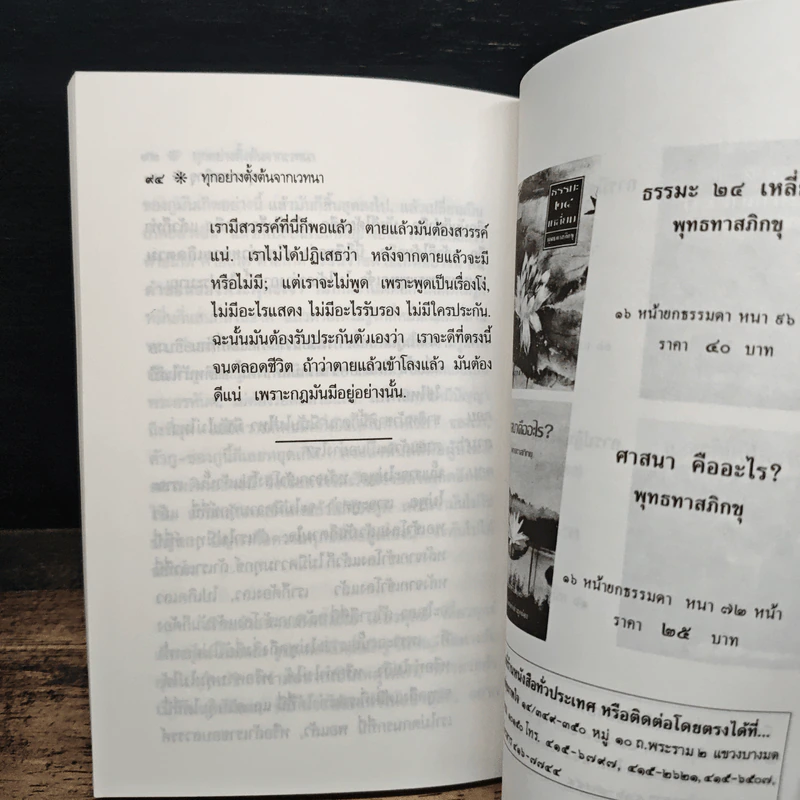 ๙๔ ❊ ทุกอย่างตั้งต้นจากเวทนา
เรามีสวรรค์ที่นี่ก็พอแล้ว ตายแล้วมันต้องสวรรค์
แน่. เราไม่ได้ปฏิเสธว่า หลังจากตายแล้วจะมี
หรือไม่มี; แต่เราจะไม่พูด เพราะพูดเป็นเรื่องโง่,
ไม่มีอะไรแสดง ไม่มีอะไรรับรอง ไม่มีใครประกัน.
ฉะนั้นมันต้องรับประกันตัวเองว่า เราจะดีที่ตรงนี้
จนตลอดชีวิต ถ้าว่าตายแล้วเข้าโลงแล้ว มันต้อง
ดีแน่ เพราะกฎมันมีอยู่อย่างนั้น.
ธรรมะ
๒๔
เหลี่ยม
พุทธทาสภิกขุ
ธรรมะ ๒๔ เหลี่
พุทธทาสภิกขุ
๑๖ หน้ายกธรรมดา หนา ๙๖
ราคา ๔๐ บาท
คืออะไร?
ศาสนา คืออะไร?
พุทธทาสภิกขุ
๑๖ หน้ายกธรรมดา หนา ๗๒ หน้า
ราคา ๒๕ บาท
หนังสือทั่วประเทศ หรือติดต่อโดยตรงได้ที่...
๑๔/๓๔๙-๓๕๐ หมู่ ๑๐ ถ.พระราม ๒ แขวงบางมด
โทร. ๔๑๕-๖๗๙๗, ๔๑๕-๒๖๒๑, ๔๑๕-๖๕๐๗,
๔๑๖-๗๗๔๔